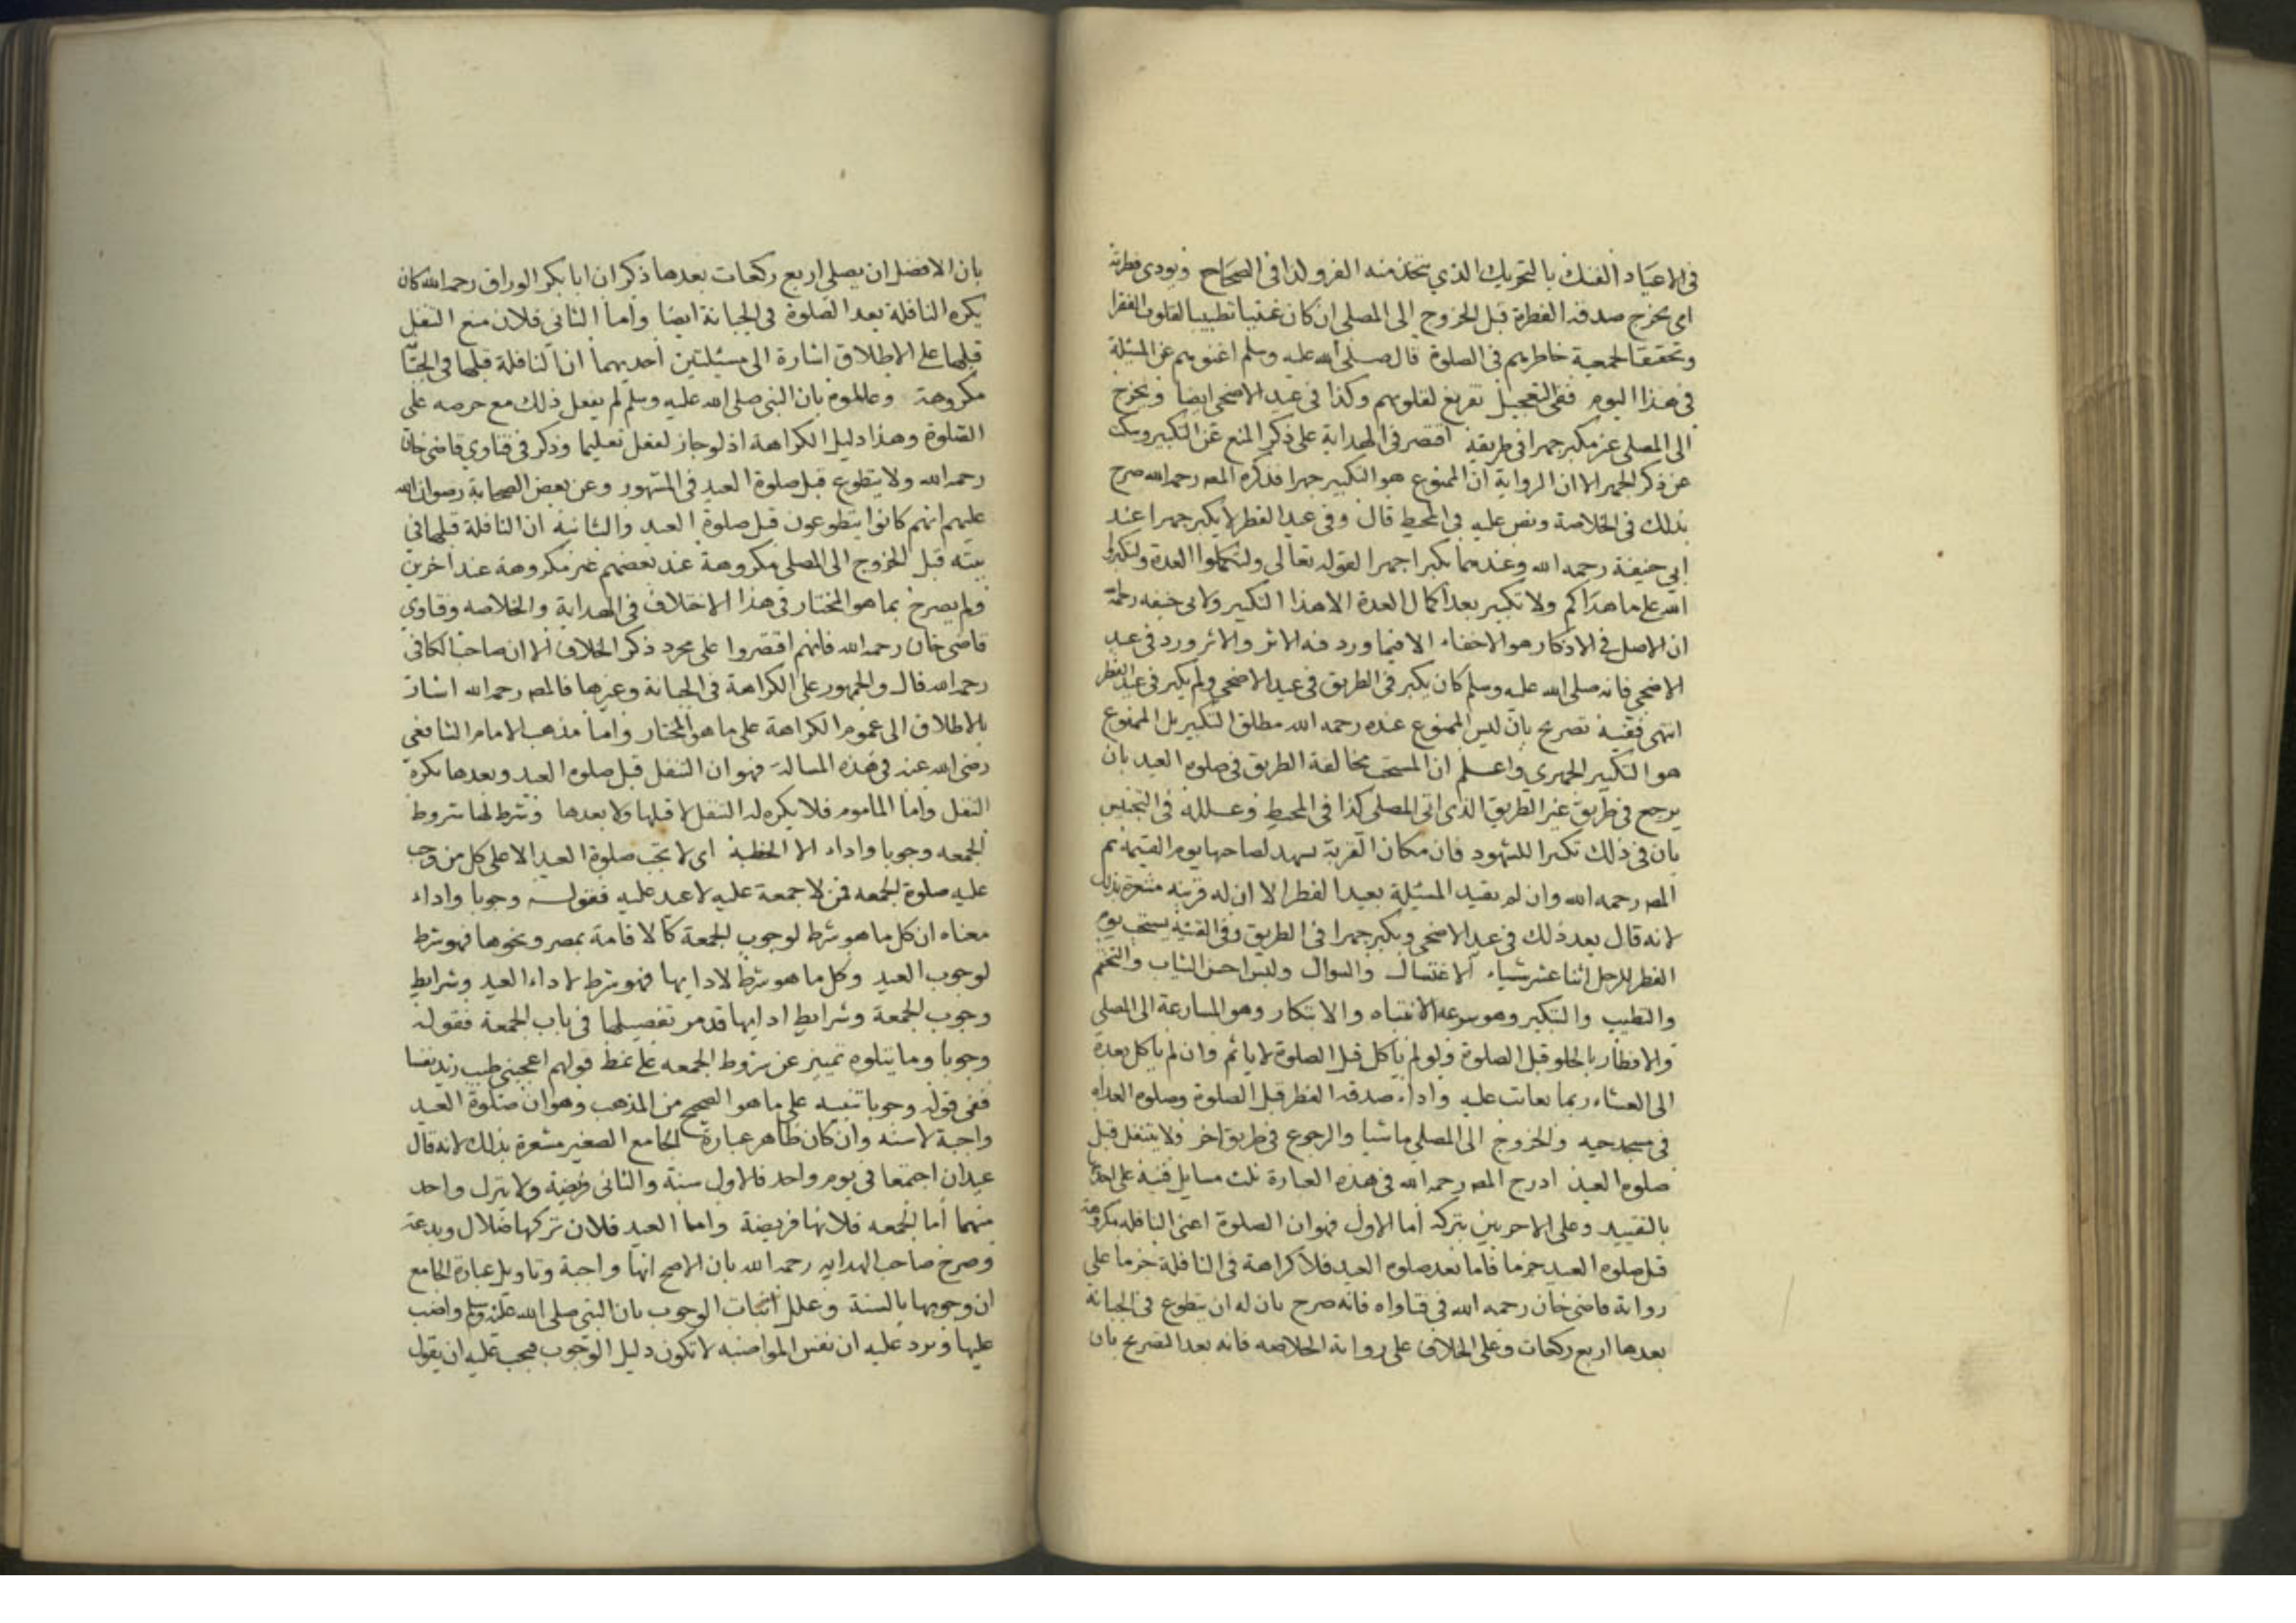 في الاعياد الفنك بالتحريك الذي يتخذ منه الفرو لذا في الصحاح ويودي فطرته
اي يخرج صدقة الفطرة قبل الخروج الى المصلى ان كان غنيا تطييبا لقلوب الفقرا
وتحقيقا لجمعية خاطرهم في الصلوة قال صلى الله عليه وسلم اغنوهم عن المسئلة
في هذا اليوم ففي التعجيل تفريغ لقلوبهم وكذا في عيد الاضحى ايضا ويخرج
الى المصلى غير مكبر جهرا في طريقه اقتصر في الهداية على ذكر المنع عن التكبير وسكت
عن ذكر الجهر الا ان الرواية ان الممنوع هو التكبير جهرا فذكره المص رحمه الله صرح
بذلك في الخلاصة ونص عليه في المحيط قال وفي عيد الفطر لا يكبر جهرا عند
ابي حنيفة رحمه الله وعندهما يكبر اجهرا لقوله تعالى ولتكملوا العدة ولتكبروا
الله على ما هداكم ولا تكبير بعد اكمال العدة الا هذا التكبير ولابي حنيفه رحمة
ان الاصل في الاذكار هو الاخفاء الا فيما ورد فيه الاثر والاثر ورد في عيد
الاضحى فانه صلى الله عليه وسلم كان يكبر في الطريق في عيد الاضحى ولم يكبر في عيد الفطر
انتهى ففيه تصريح بان ليس الممنوع عنده رحمه الله مطلق التكبير بل الممنوع
هو التكبير الجهري واعلم ان المستحب مخالفة الطريق في صلوة العيد بان
يرجع في طريق غير الطريق الذي اتى المصلى كذا في المحيط وعلله في التجنيس
بان في ذلك تكبيرا للشهود فان مكان القربة يشهد لصاحبها يوم القيمة ثم
المص رحمه الله وان لم يقيد المسئلة بعيد الفطر الا ان له قرينة مشعرة بذلك
لانه قال بعد ذلك في عيد الاضحى ويكبر جهرا في الطريق وفي القنية يستحب يوم
الفطر للرجل اثنا عشر شياء الاغتسال والسواك ولبس احسن الثياب والتختم
والتطيب والتبكير وهو سرعة الانتباه والابتكار وهو المسارعة الى المصلى
والافطار بالحلو قبل الصلوة ولو لم ياكل قبل الصلوة لا ياثم وان لم ياكل بعده
الى العشاء ربما يعاتب عليه واداء صدقة الفطر قبل الصلوة وصلوة الغداة
في مسجد حيه والخروج الى المصلى ماشيا والرجوع في طريق اخر ولا يتنفل قبل
صلوة العيد ادرج المص رحمه الله في هذه العبارة ثلث مسايل فنبه على احديها
بالتقييد وعلى الاخريين بتركه اما الاول فهو ان الصلوة اعني النافلة مكروهة
قبل صلوة العيد جزما فاما بعد صلوة العيد فلا كراهة في النافلة جزما على
رواية قاضي خان رحمه الله في فتاواه فانه صرح بان له ان يتطوع في الجبانة
بعدها اربع ركعات وعلى الخلاف على رواية الخلاصه فانه بعد التصريح بان
بان الافضل ان يصلي اربع ركعات بعدها ذكر ان ابا بكر الوراق رحمه الله كان
يكره النافلة بعد الصلوة في الجبانة ايضا واما الثاني فلان منع التنفل
قبلها على الاطلاق اشارة الى مسئلتين احديهما ان النافلة قبلها في الجبانة
مكروهة وعللوه بان النبي صلى الله عليه وسلم لم يفعل ذلك مع حرصه على
الصلوة وهذا دليل الكراهة اذ لو جاز لفعل تعليما وذكر في فتاوي قاضي خان
رحمه الله ولا يتطوع قبل صلوة العيد في المشهور وعن بعض الصحابة رضوان الله
عليهم انهم كانوا يتطوعون قبل صلوة العيد والثانية ان النافلة قبلها في
بيته قبل الخروج الى المصلى مكروهة عند بعضهم غير مكروهة عند اخرين
ولم يصرح بما هو المختار في هذا الاختلاف في الهداية والخلاصه وفتاوي
قاضي خان رحمه الله فانهم اقتصروا على مجرد ذكر الخلاف الا ان صاحب الكافي
رحمه الله قال والجمهور على الكراهة في الجبانة وغيرها فالمص رحمه الله اشار
بالاطلاق الى عموم الكراهة على ما هو المختار واما مذهب الامام الشافعي
رضي الله عنه في هذه المسالة فهو ان التنفل قبل صلوة العيد وبعدها يكره
التنفل واما الماموم فلا يكره له التنفل لا قبلها ولا بعدها وشرط لها شروط
الجمعه وجوبا واداء الا الخطبة اي لا تجب صلوة العيد الا على كل من وجب
عليه صلوة الجمعه فمن لا جمعة عليه لا عيد عليه فقوله وجوبا واداء
معناه ان كل ما هو شرط لوجوب الجمعة كالاقامة بمصر ونحوها فهو شرط
لوجوب العيد وكل ما هو شرط لادايها فهو شرط لاداء العيد وشرايط
وجوب الجمعة وشرايط ادايها قد مر تفصيلها في باب الجمعة فقوله
وجوبا وما يتلوه تمييز عن شروط الجمعه على نمط قولهم اعجبني طيب زيد نفسا
ففي قوله وجوبا تنبيه على ما هو الصحيح من المذهب وهو ان صلوة العيد
واجبة لا سنة وان كان ظاهر عبارة الجامع الصغير مشعرة بذلك لانه قال
عيدان اجتمعا في يوم واحد فالاول سنة والثاني فريضة ولا يترك واحد
منهما اما الجمعه فلانها فريضة واما العيد فلان تركها ضلال وبدعة
وصرح صاحب الهدايه رحمه الله بان الاصح انها واجبة وتاويل عبارة الجامع
ان وجوبها بالسنة وعلل اثبات الوجوب بان النبي صلى الله عليه وسلم واضب
عليها ويرد عليه ان نفس المواضبه لا تكون دليل الوجوب فيجب عليه ان يقول